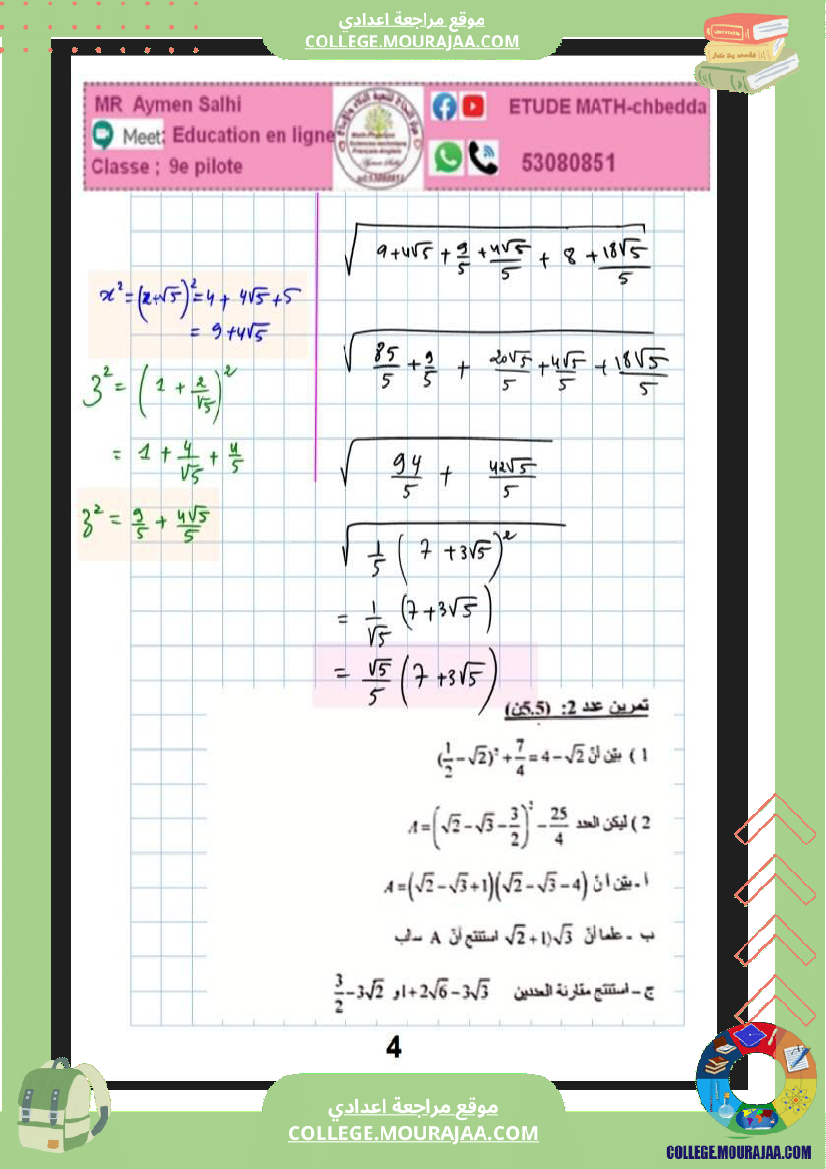 موقع مراجعة اعدادي
COLLEGE.MOURAJAA.COM
MR Aymen Salhi
Meet: Education en ligne
Classe ; 9e pilote
ETUDE MATH-chbedda
53080851
x² = (2+√5)² = 4 + 4√5 + 5
= 9+4√5
z² = (1 + 2/√5)²
= 1 + 4/√5 + 4/5
z² = 9/5 + 4√5/5
√(9+4√5 + 9/5 + 4√5/5 + 8 + 18√5/5)
√(85/5 + 9/5 + 20√5/5 + 4√5/5 + 18√5/5)
√(94/5 + 42√5/5)
√(1/5 (7 + 3√5)²)
= 1/√5 (7+3√5)
= √5/5 (7+3√5)
تمرين عدد 2: (5.5ن)
1 ) بيّن أنّ (1/2 − √2)² + 7/4 = 4 − √2
2 ) ليكن العدد A = (√2 − √3 − 3/2)² − 25/4
أ - بيّن أنّ A = (√2 − √3 + 1)(√2 − √3 − 4)
ب - علما أنّ √2 + 1⟩√3 استنتج أنّ A سالب
ج - استنتج مقارنة العددين 1+2√6−3√3 و 3/2−3√2
4
موقع مراجعة اعدادي
COLLEGE.MOURAJAA.COM
COLLEGE.MOURAJAA.COM